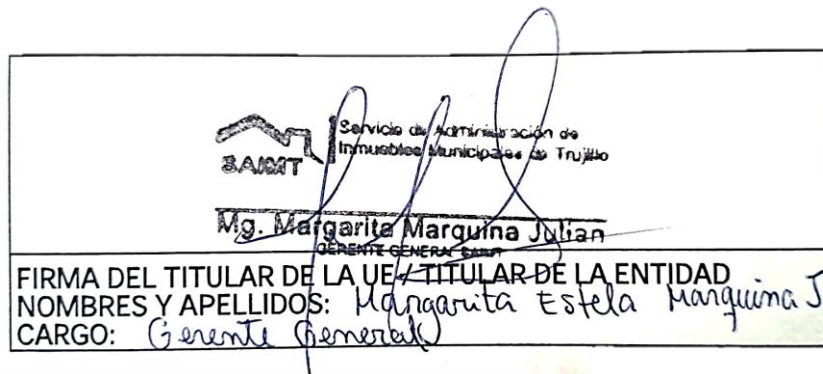 Servicio de Administración de
Inmuebles Municipales de Trujillo
SAIMT
Mg. Margarita Marquina Julian
GERENTE GENERAL SAIMT
FIRMA DEL TITULAR DE LA UE / TITULAR DE LA ENTIDAD
NOMBRES Y APELLIDOS: Margarita Estela Marquina J
CARGO: Gerente General